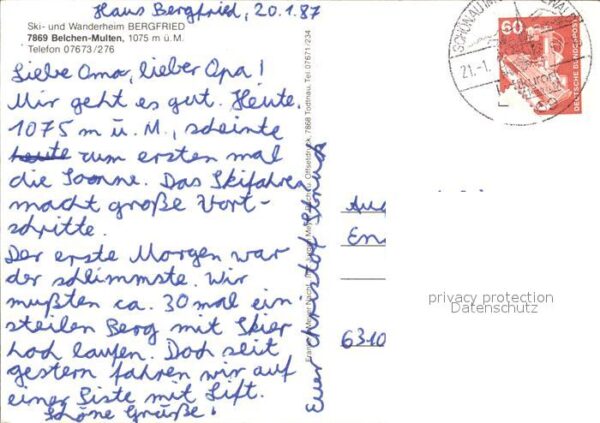 Haus Bergfried, 20.1.87
Ski- und Wanderheim BERGFRIED
7869 Belchen-Multen, 1075 m ü. M.
Telefon 07673/276
Liebe Oma, lieber Opa!
Mir geht es gut. Heute
1075 m ü. M., scheinte
heute zum ersten mal
die Sonne. Das Skifahren
macht große Fort-
schritte.
Der erste Morgen war
der schlimmste. Wir
mußten ca. 30 mal ein
steilen Berg mit Skier
hoch laufen. Doch seit
gestern fahren wir auf
einer Piste mit Lift.
Schöne Grüße!
Euer Christof
Offsetdruck, 7868 Todtnau, Tel. 07671-234
SCHÖNAU IM
WALD
21.-1.
60
DEUTSCHE BUNDESPOST
Aug
En
6310
privacy protection
Datenschutz